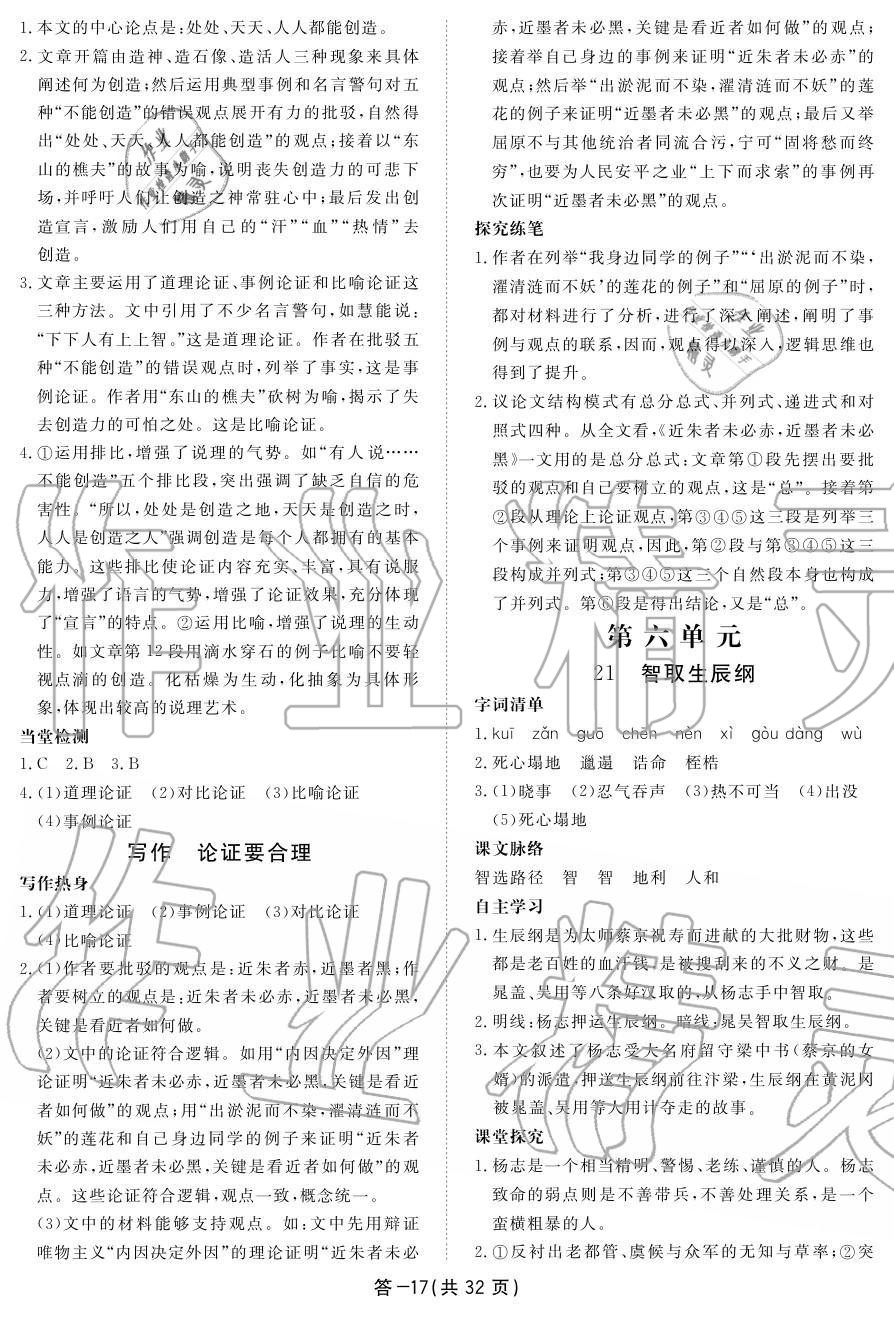 1.本文的中心论点是:处处、天天、人人都能创造。
2.文章开篇由造神、造石像、造活人三种现象来具体
阐述何为创造;然后运用典型事例和名言警句对五
种“不能创造”的错误观点展开有力的批驳,自然得
出“处处、天天、人人都能创造”的观点;接着以“东
山的樵夫”的故事为喻,说明丧失创造力的可悲下
场,并呼吁人们让创造之神常驻心中;最后发出创
造宣言,激励人们用自己的“汗”“血”“热情”去
创造。
3.文章主要运用了道理论证、事例论证和比喻论证这
三种方法。文中引用了不少名言警句,如慧能说:
“下下人有上上智。”这是道理论证。作者在批驳五
种“不能创造”的错误观点时,列举了事实,这是事
例论证。作者用“东山的樵夫”砍树为喻,揭示了失
去创造力的可怕之处。这是比喻论证。
4.①运用排比,增强了说理的气势。如“有人说……
不能创造”五个排比段,突出强调了缺乏自信的危
害性。“所以,处处是创造之地,天天是创造之时,
人人是创造之人”强调创造是每个人都拥有的基本
能力。这些排比使论证内容充实、丰富,具有说服
力,增强了语言的气势,增强了论证效果,充分体现
了“宣言”的特点。②运用比喻,增强了说理的生动
性。如文章第12段用滴水穿石的例子比喻不要轻
视点滴的创造。化枯燥为生动,化抽象为具体形
象,体现出较高的说理艺术。
当堂检测
1.C 2.B 3.B
4.(1)道理论证 (2)对比论证 (3)比喻论证
(4)事例论证
写作 论证要合理
写作热身
1.(1)道理论证 (2)事例论证 (3)对比论证
(4)比喻论证
2.(1)作者要批驳的观点是:近朱者赤,近墨者黑;作
者要树立的观点是:近朱者未必赤,近墨者未必黑,
关键是看近者如何做。
(2)文中的论证符合逻辑。如用“内因决定外因”理
论证明“近朱者未必赤,近墨者未必黑,关键是看近
者如何做”的观点;用“出淤泥而不染,濯清涟而不
妖”的莲花和自己身边同学的例子来证明“近朱者
未必赤,近墨者未必黑,关键是看近者如何做”的观
点。这些论证符合逻辑,观点一致,概念统一。
(3)文中的材料能够支持观点。如:文中先用辩证
唯物主义“内因决定外因”的理论证明“近朱者未必
赤,近墨者未必黑,关键是看近者如何做”的观点;
接着举自己身边的事例来证明“近朱者未必赤”的
观点;然后举“出淤泥而不染,濯清涟而不妖”的莲
花的例子来证明“近墨者未必黑”的观点;最后又举
屈原不与其他统治者同流合污,宁可“固将愁而终
穷”,也要为人民安平之业“上下而求索”的事例再
次证明“近墨者未必黑”的观点。
探究练笔
1.作者在列举“我身边同学的例子”“‘出淤泥而不染,
濯清涟而不妖’的莲花的例子”和“屈原的例子”时,
都对材料进行了分析,进行了深入阐述,阐明了事
例与观点的联系,因而,观点得以深入,逻辑思维也
得到了提升。
2.议论文结构模式有总分总式、并列式、递进式和对
照式四种。从全文看,《近朱者未必赤,近墨者未必
黑》一文用的是总分总式:文章第①段先摆出要批
驳的观点和自己要树立的观点,这是“总”。接着第
②段从理论上论证观点,第③④⑤这三段是列举三
个事例来证明观点,因此,第②段与第③④⑤这三
段构成并列式;第③④⑤这三个自然段本身也构成
了并列式。第⑥段是得出结论,又是“总”。
第六单元
21 智取生辰纲
字词清单
1.kuī zǎn guō chēn nèn xì gòu dàng wù
2.死心塌地 邋遢 诰命 桎梏
3.(1)晓事 (2)忍气吞声 (3)热不可当 (4)出没
(5)死心塌地
课文脉络
智选路径 智 智 地利 人和
自主学习
1.生辰纲是为太师蔡京祝寿而进献的大批财物,这些
都是老百姓的血汗钱,是被搜刮来的不义之财。是
晁盖、吴用等八条好汉取的,从杨志手中智取。
2.明线:杨志押运生辰纲。暗线:晁吴智取生辰纲。
3.本文叙述了杨志受大名府留守梁中书(蔡京的女
婿)的派遣,押送生辰纲前往汴梁,生辰纲在黄泥冈
被晁盖、吴用等人用计夺走的故事。
课堂探究
1.杨志是一个相当精明、警惕、老练、谨慎的人。杨志
致命的弱点则是不善带兵,不善处理关系,是一个
蛮横粗暴的人。
2.①反衬出老都管、虞候与众军的无知与草率;②突
答-17(共32页)
作业精灵
作业精灵